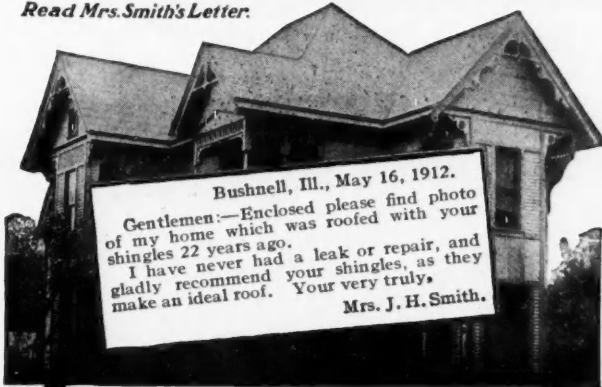 Read Mrs. Smith's Letter.
Bushnell, Ill., May 16, 1912.
Gentlemen:—Enclosed please find photo
of my home which was roofed with your
shingles 22 years ago.
I have never had a leak or repair, and
gladly recommend your shingles, as they
make an ideal roof. Your very truly,
Mrs. J. H. Smith.